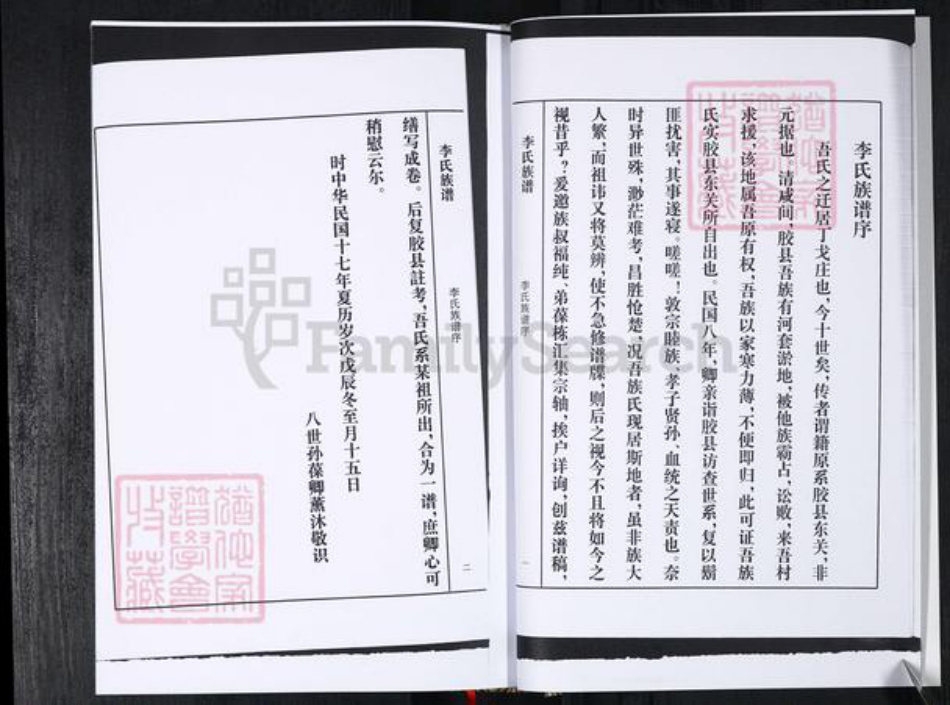 李氏族谱序
吾氏之迁居丁戈庄也，今十世矣，传者谓籍原系胶县东关，非
元据也。清咸间，胶县吾族有河套淤地，被他族霸占，讼败，来吾村
求援，该地属吾原有权，吾族以家寒力薄，不便即归，此可证吾族
氏实胶县东关所自出也。民国八年，卿亲诣胶县访查世系，复以
匪扰害，其事遂寝。嗟嗟！敦宗睦族、孝子贤孙、血统之天责也。奈
时异世殊，渺茫难考，昌胜怆楚，况吾族氏现居斯地者，虽非族大
人繁，而祖讳又将莫辨，使不急修谱牒，则后之视今不且将如今之
视昔乎？爰邀族叔福纯、弟葆栋汇集宗轴，挨户详询，创兹谱稿，
李氏族谱
李氏族谱序
一
李氏族谱
李氏族谱序
二
缮写成卷。后复胶县註考，吾氏系某祖所出，合为一谱，庶卿心可
稍慰云尔。
时中华民国十七年夏历岁次戊辰冬至月十五日
八世孙葆卿薰沐敬识
FamilySearch